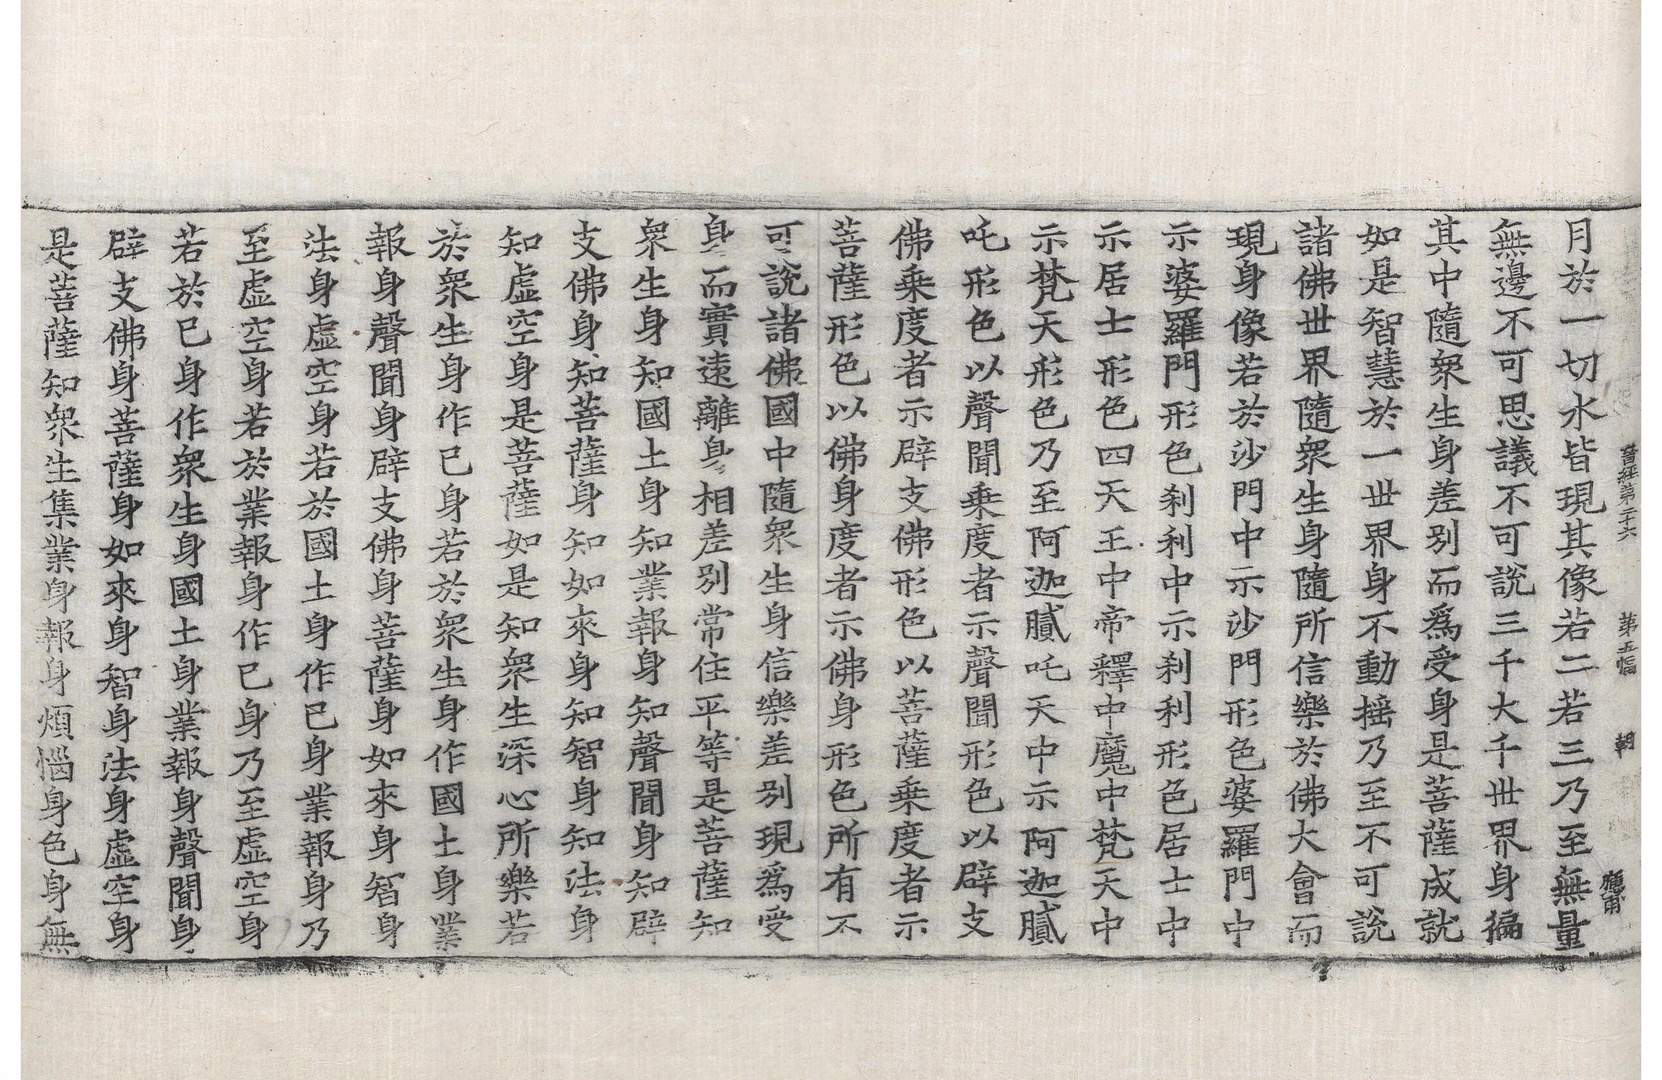 晉經第二十六　第五幅　朝
月於一切水皆現其像若二若三乃至無量
無邊不可思議不可說三千大千世界身徧
其中隨衆生身差別而爲受身是菩薩成就
如是智慧於一世界身不動摇乃至不可說
諸佛世界隨衆生身隨所信樂於佛大會而
現身像若於沙門中示沙門形色婆羅門中
示婆羅門形色刹利中示刹利形色居士中
示居士形色四天王中帝釋中魔中梵天中
示梵天形色乃至阿迦膩吒天中示阿迦膩
吒形色以聲聞乗度者示聲聞形色以辟支
佛乗度者示辟支佛形色以菩薩乗度者示
菩薩形色以佛身度者示佛身形色所有不
可說諸佛國中隨衆生身信樂差別現爲受
身而實遠離身相差別常住平等是菩薩知
衆生身知國土身知業報身知聲聞身知辟
支佛身知菩薩身知如來身知智身知法身
知虛空身是菩薩如是知衆生深心所樂若
於衆生身作己身若於衆生身作國土身業
報身聲聞身辟支佛身菩薩身如來身智身
法身虛空身若於國土身作己身業報身乃
至虛空身若於業報身作己身乃至虛空身
若於己身作衆生身國土身業報身聲聞身
辟支佛身菩薩身如來身智身法身虛空身
是菩薩知衆生集業身報身煩惱身色身無